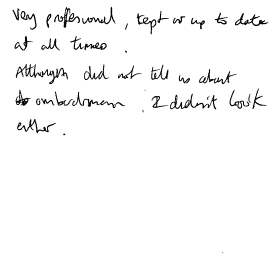 Very professional, kept us up to date
at all times.
Although did not tell us about
ombudsman. I didn't look
either.